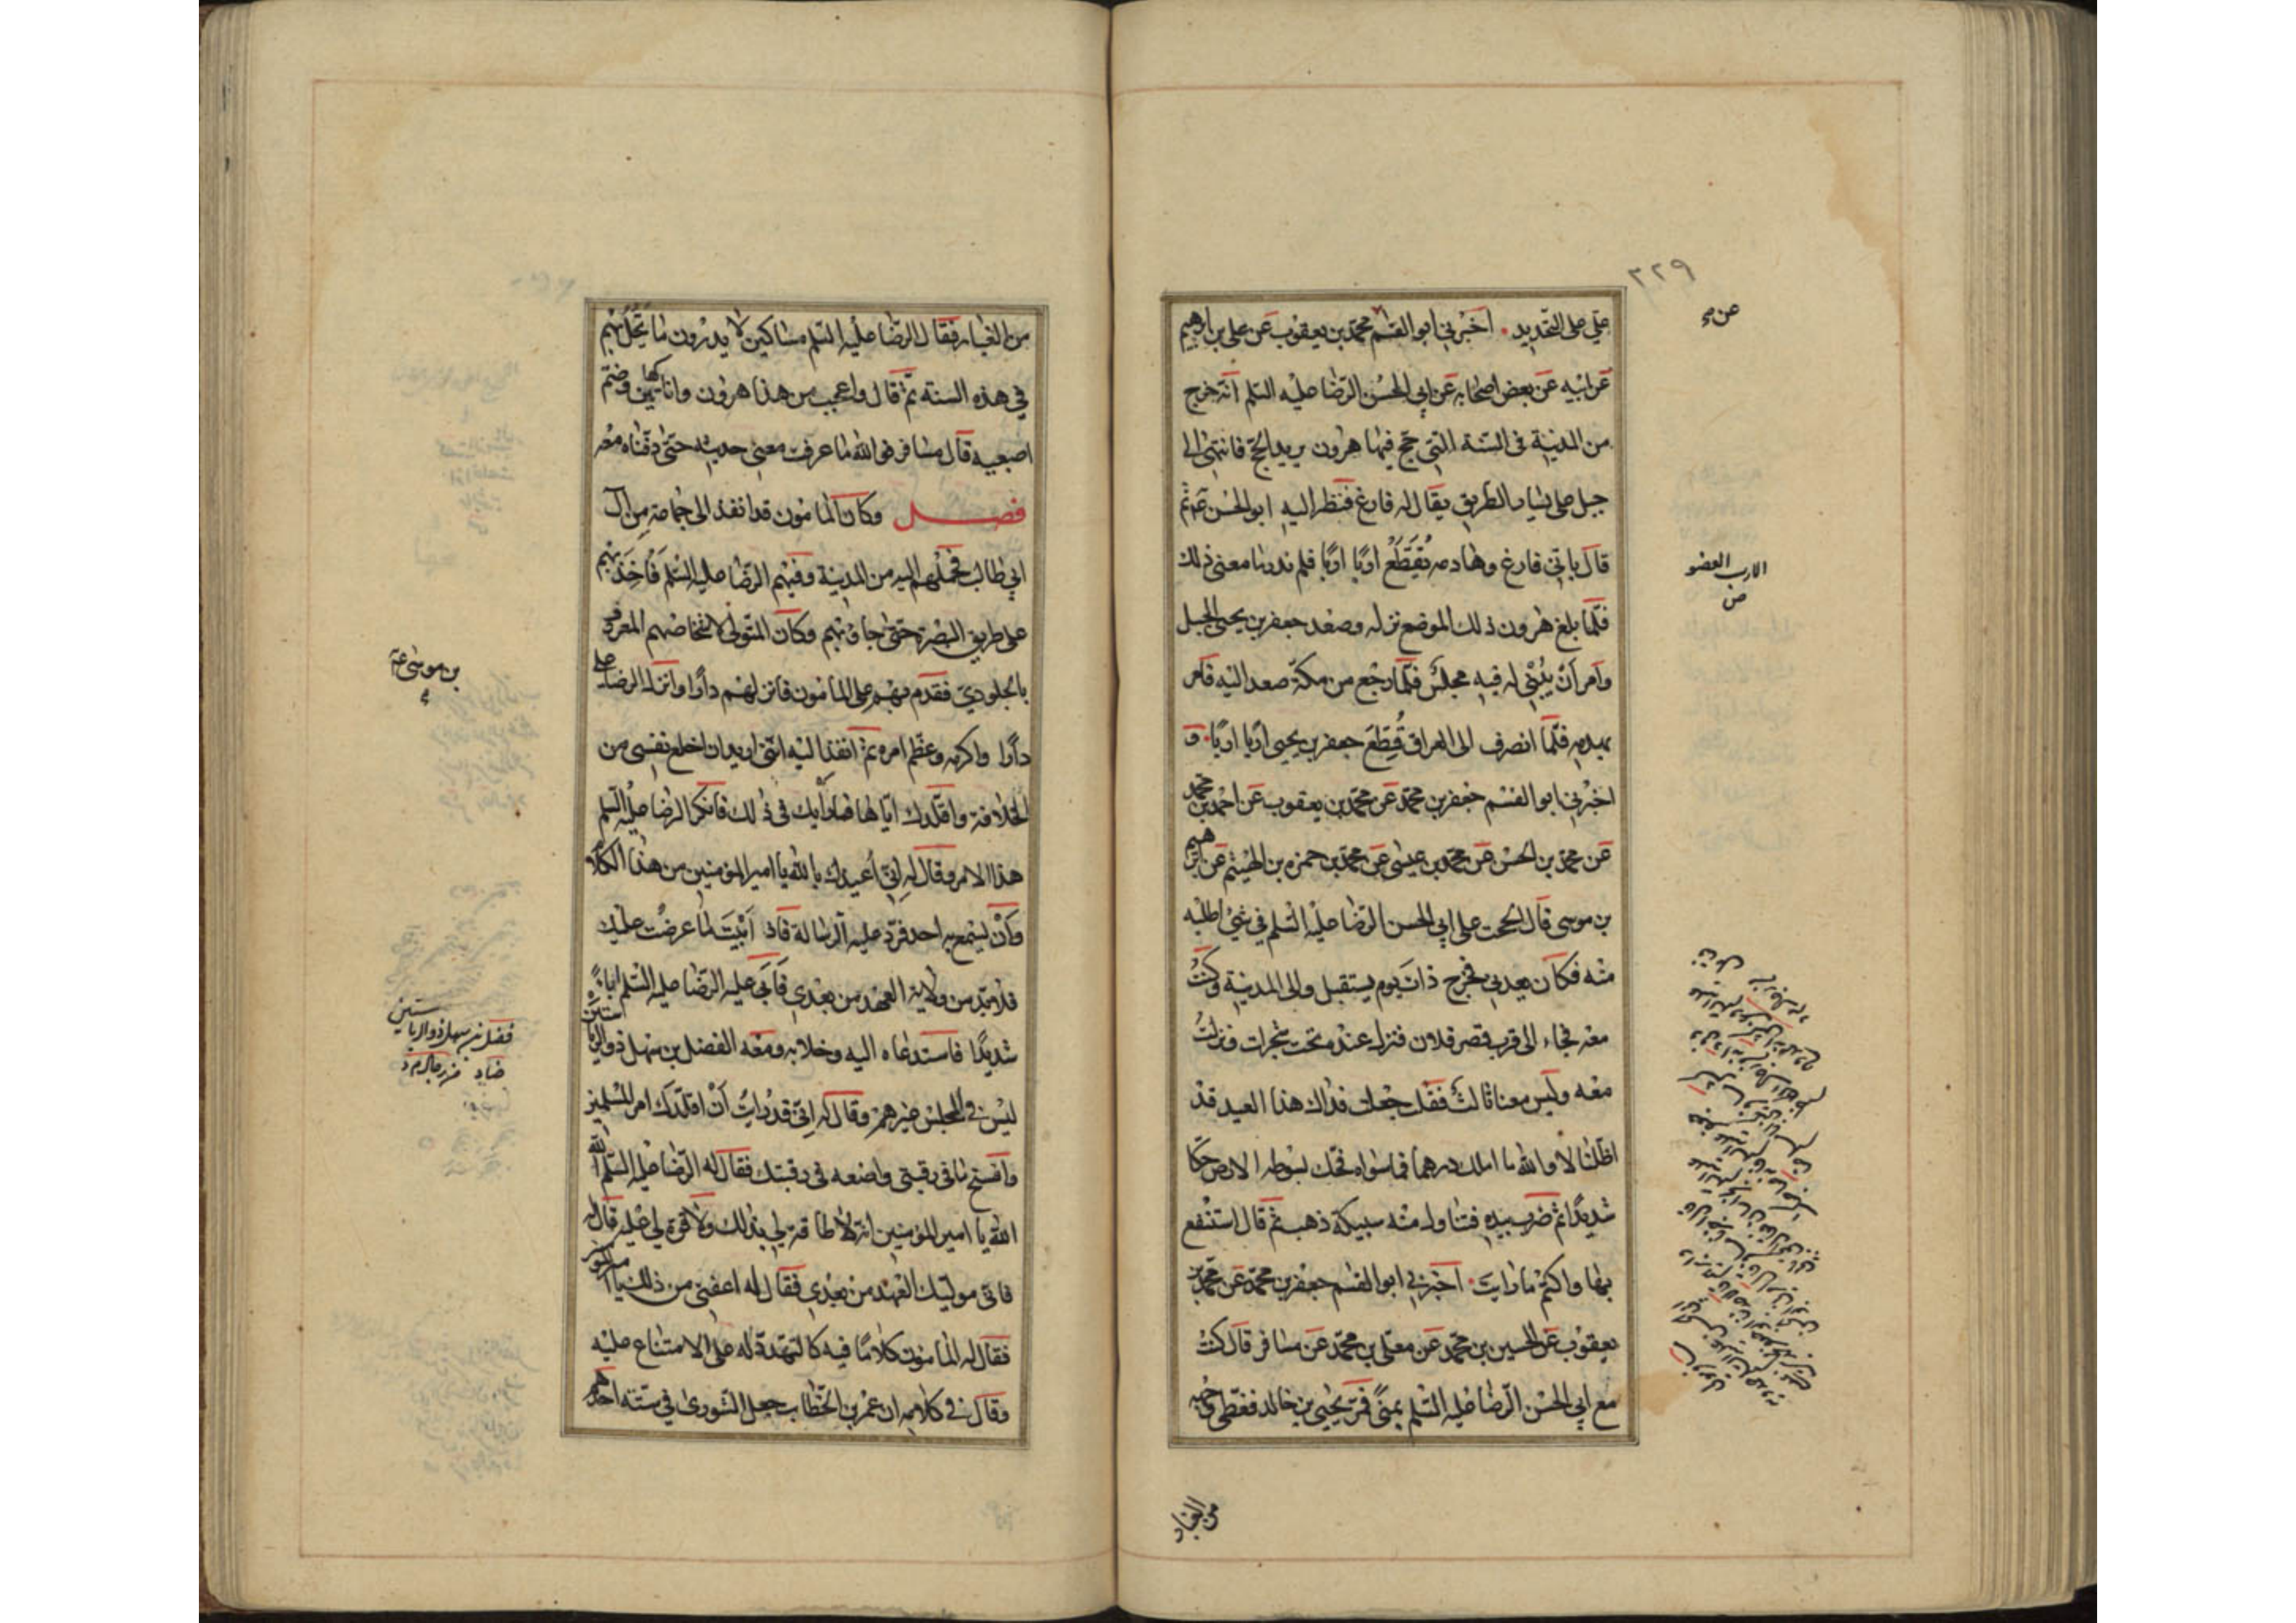 ٣٢٩
علي على التحديد. اخبرني ابو القسم محمد بن يعقوب عن علي بن ابرهيم
عن ابيه عن بعض اصحابه عن ابي الحسن الرضا عليه السلم انه خرج
من المدينة في السنة التي حج فيها هرون يريد الحج فانتهى الى
جبل على يسار الطريق يقال له فارغ فنظر اليه ابو الحسن ثم
قال باني فارغ وهادمه يُقَطَّعُ اربًا اربًا فلم ندر ما معنى ذلك
فلما بلغ هرون ذلك الموضع نزله وصعد جعفر بن يحيى الجبل
وامر أنْ يُبْنى له فيه مجلس فلما رجع من مكة صعد اليه فامر
بهدمه فلما انصرف الى العراق قُطِّعَ جعفر بن يحيى اربًا اربًا. و
اخبرني ابو القسم جعفر بن محمد عن محمد بن يعقوب عن احمد بن محمد
عن محمد بن الحسن عن محمد بن عيسى عن محمد بن حمزه بن الهيثم عن ابرهيم
بن موسى قال الححت على ابي الحسن الرضا عليه السلم في شيء اطلبه
منه فكان يعدني فخرج ذات يوم يستقبل والي المدينة وكنتُ
معه فجاء الى قرب قصر فلان فنزل عنده تحت شجرات ونزلتُ
معه وليس معنا ثالثٌ فقلت جعلت فداك هذا العيد قد
اظلنا لا والله ما املك درهما فما سواه فحك بسوطه الارض حكا
شديدًا ثم ضرب بيده فتناول منه سبيكة ذهب ثم قال استنفع
بها واكتم ما رايت. اخبرني ابو القسم جعفر بن محمد عن محمد بن
يعقوب عن الحسين بن محمد عن معلى بن محمد عن مسافر قال كنتُ
مع ابي الحسن الرضا عليه السلم بمنًى فمرّ يحيى بن خالد فغطى وجهه
الارب العضو
ص
من الغبار
من الغبار فقال الرضا عليه السلم مساكين لا يدرون ما يحُلُّ بهم
في هذه السنة ثم قال واعجب من هذا هرون وانا كهاتين وضم
اصبعيه قال مسافر فو الله ما عرفت معنى حديثه حتى دفناه معه
فصل وكان المامون قد انفذ الى جماعة من آل
ابي طالب فحملهم اليه من المدينة وفيهم الرضا عليه السلم فَاُخِذَ بهم
على طريق البصرة حتى جاؤه بهم وكان المتولي لاشخاصهم المعروف
بالجلودي فقدم بهم على المامون فانزلهم دارًا وانزل الرضا علي
دارا واكرمه وعظم امره ثم انفذ اليه انني اريد ان اخلع نفسي من
الخلافة واقلدك اياها فما رايك في ذلك فانكر الرضا عليه السلم
هذا الامر وقال له اني أُعيذك بالله يا امير المؤمنين من هذا الكلام
وأنْ يسمع به احد فردّ عليه الرسالة فاذ ابَيْتَ ما عرضتُ عليك
فلا بدّ من ولاية العهد من بعدي فأبَى عليه الرضا عليه السلم اباءً
شديدًا فاستدعاه اليه وخلا به ومعه الفضل بن سهل ذو الرياستين
ليس في المجلس غيرهم وقال له انّي قد رايتُ أنْ اقلّدك امر المسلمين
وافسخ ما في رقبتي واضعه في رقبتك فقال له الرضا عليه السلم الله
الله يا امير المؤمنين انه لا طاقة لي بذلك ولا قوة لي عليه قال له
فاني موليك العهد من بعدي فقال له اعفني من ذلك يا امير المؤمنين
فقال له المامون كلامًا فيه كالتهدد له على الامتناع عليه
وقال في كلامه ان عمر بن الخطاب جعل الشورى في ستة احدهم
بن موسى
فضل بن سهل ذو الرياستين